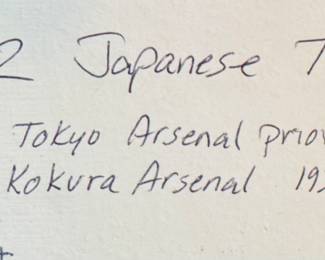 2 Japanese T
Tokyo Arsenal prio
Kokura Arsenal 19